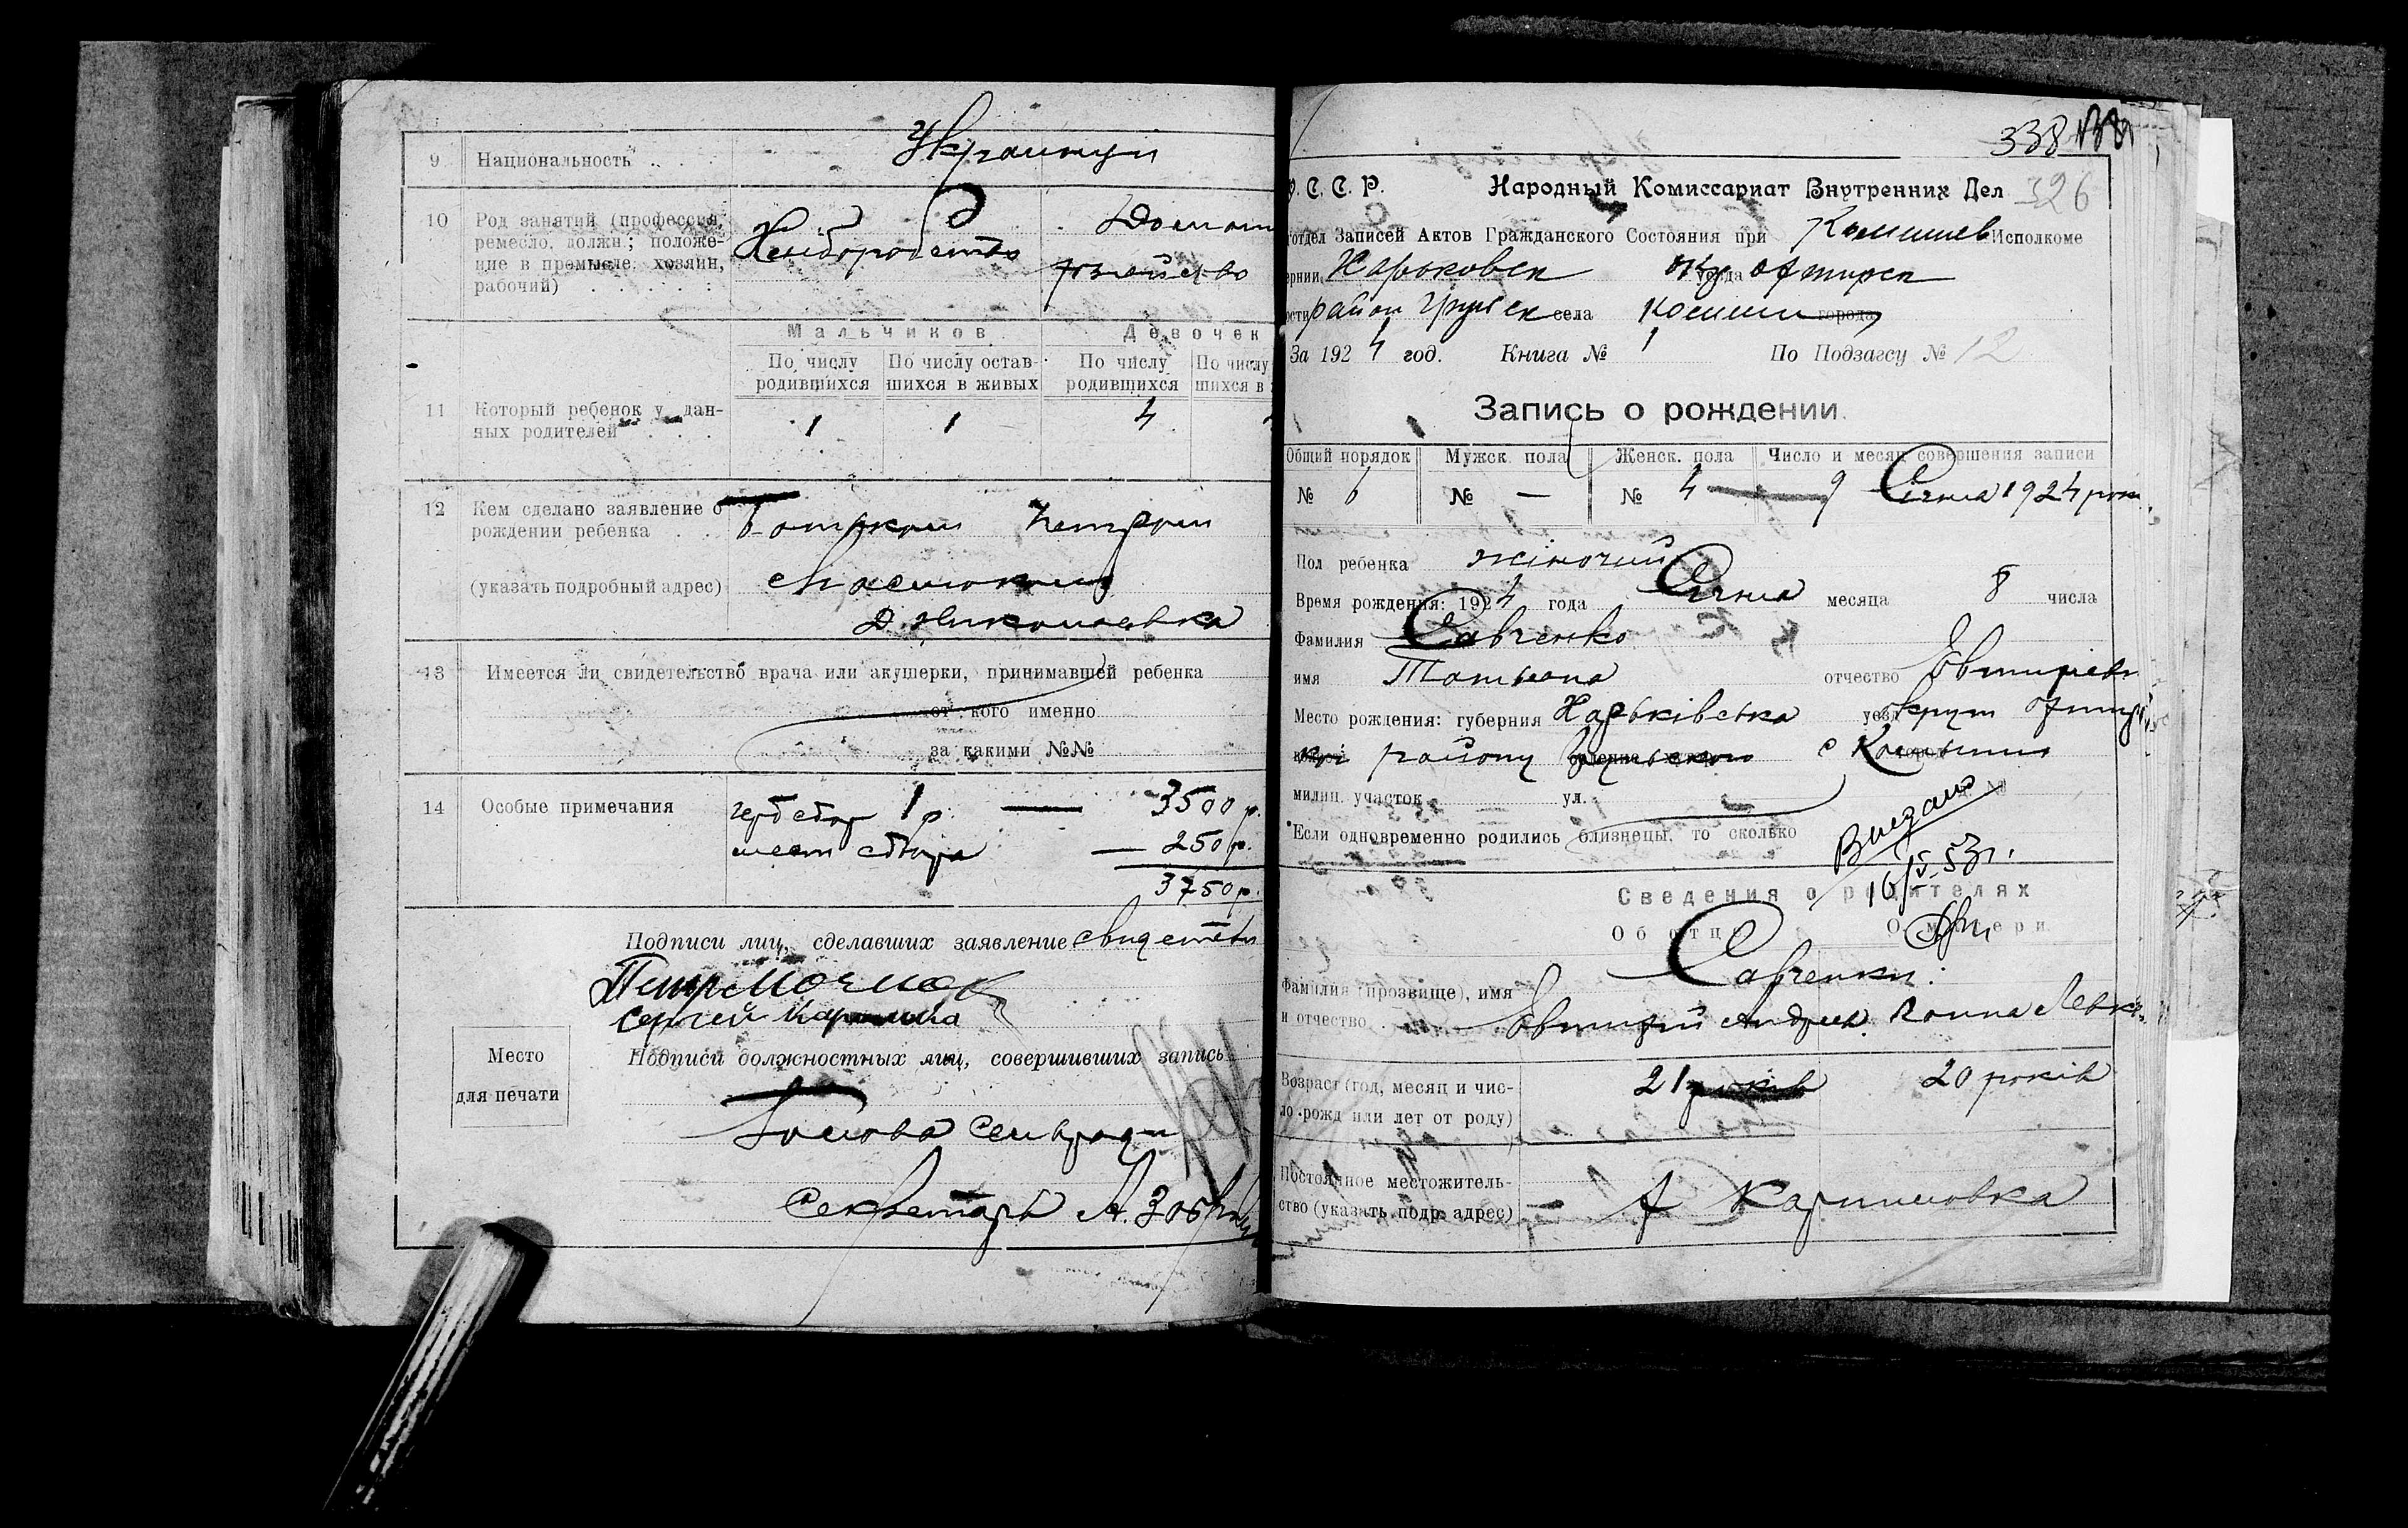 9 Национальность . . . Украинци
10 Род занятий (профессия, ремесло, должн.; положе-
ние в промысле: хозяин, рабочий) . . . . . :
Хлибородство
Домашн
хозяйство
Мальчиков Девочек
По числу родившихся По числу остав-шихся в живых По числу родившихся По числу шихся в
11 Который ребенок у дан-
ных родителей . . . 1 1 4
12 Кем сделано заявление о
рождении ребенка . . Батьком Петром
(указать подробный адрес)
Д. Николаевка
13 Имеется ли свидетельство врача или акушерки, принимавшей ребенка
от кого именно
за какими №№
14 Особые примечания
герб сбор 1 р. — 3500 р.
мест сбора — 250 р.
3750 р.
Подписи лиц, сделавших заявление свидетели
Сергей
Место
для печати
Подписи должностных лиц, совершивших запись
Голова Сельради
Секретарь А.
338
С. С. Р. Народный Комиссариат Внутренних Дел 326
отдел Записей Актов Гражданского Состояния при Камышев Исполкоме
ернии Харьковск окр уезда Охтирск
ости район Грунск села Комыши города
За 1924 год. Книга № 1 По Подзагсу № 12
Запись о рождении.
Общий порядок Мужск. пола Женск. пола Число и месяц совершения записи
№ 6 № — № 4 — 9 Січня 1924 року
Пол ребенка жіночий
Время рождения: 1924 года Січня месяца 8 числа
Фамилия Савченко
имя Татьяна отчество Евтихіевн
Место рождения: губерния Харьківська уезд округ Охтирс
кої району Грунського с Комыши
милиц. участок ул.
Если одновременно родились близнецы, то сколько
Выдано
16/V-53 г.
Сведения о родителях
Об отце О матери
Савченки:
Фамилия (прозвище), имя
и отчество . . Евтихий Андрев. Ганна Левк.
Возраст (год, месяц и чис-
ло рожд или лет от роду) 21 років 20 років
Постоянное местожитель-
ство (указать подр. адрес) х Каришовка